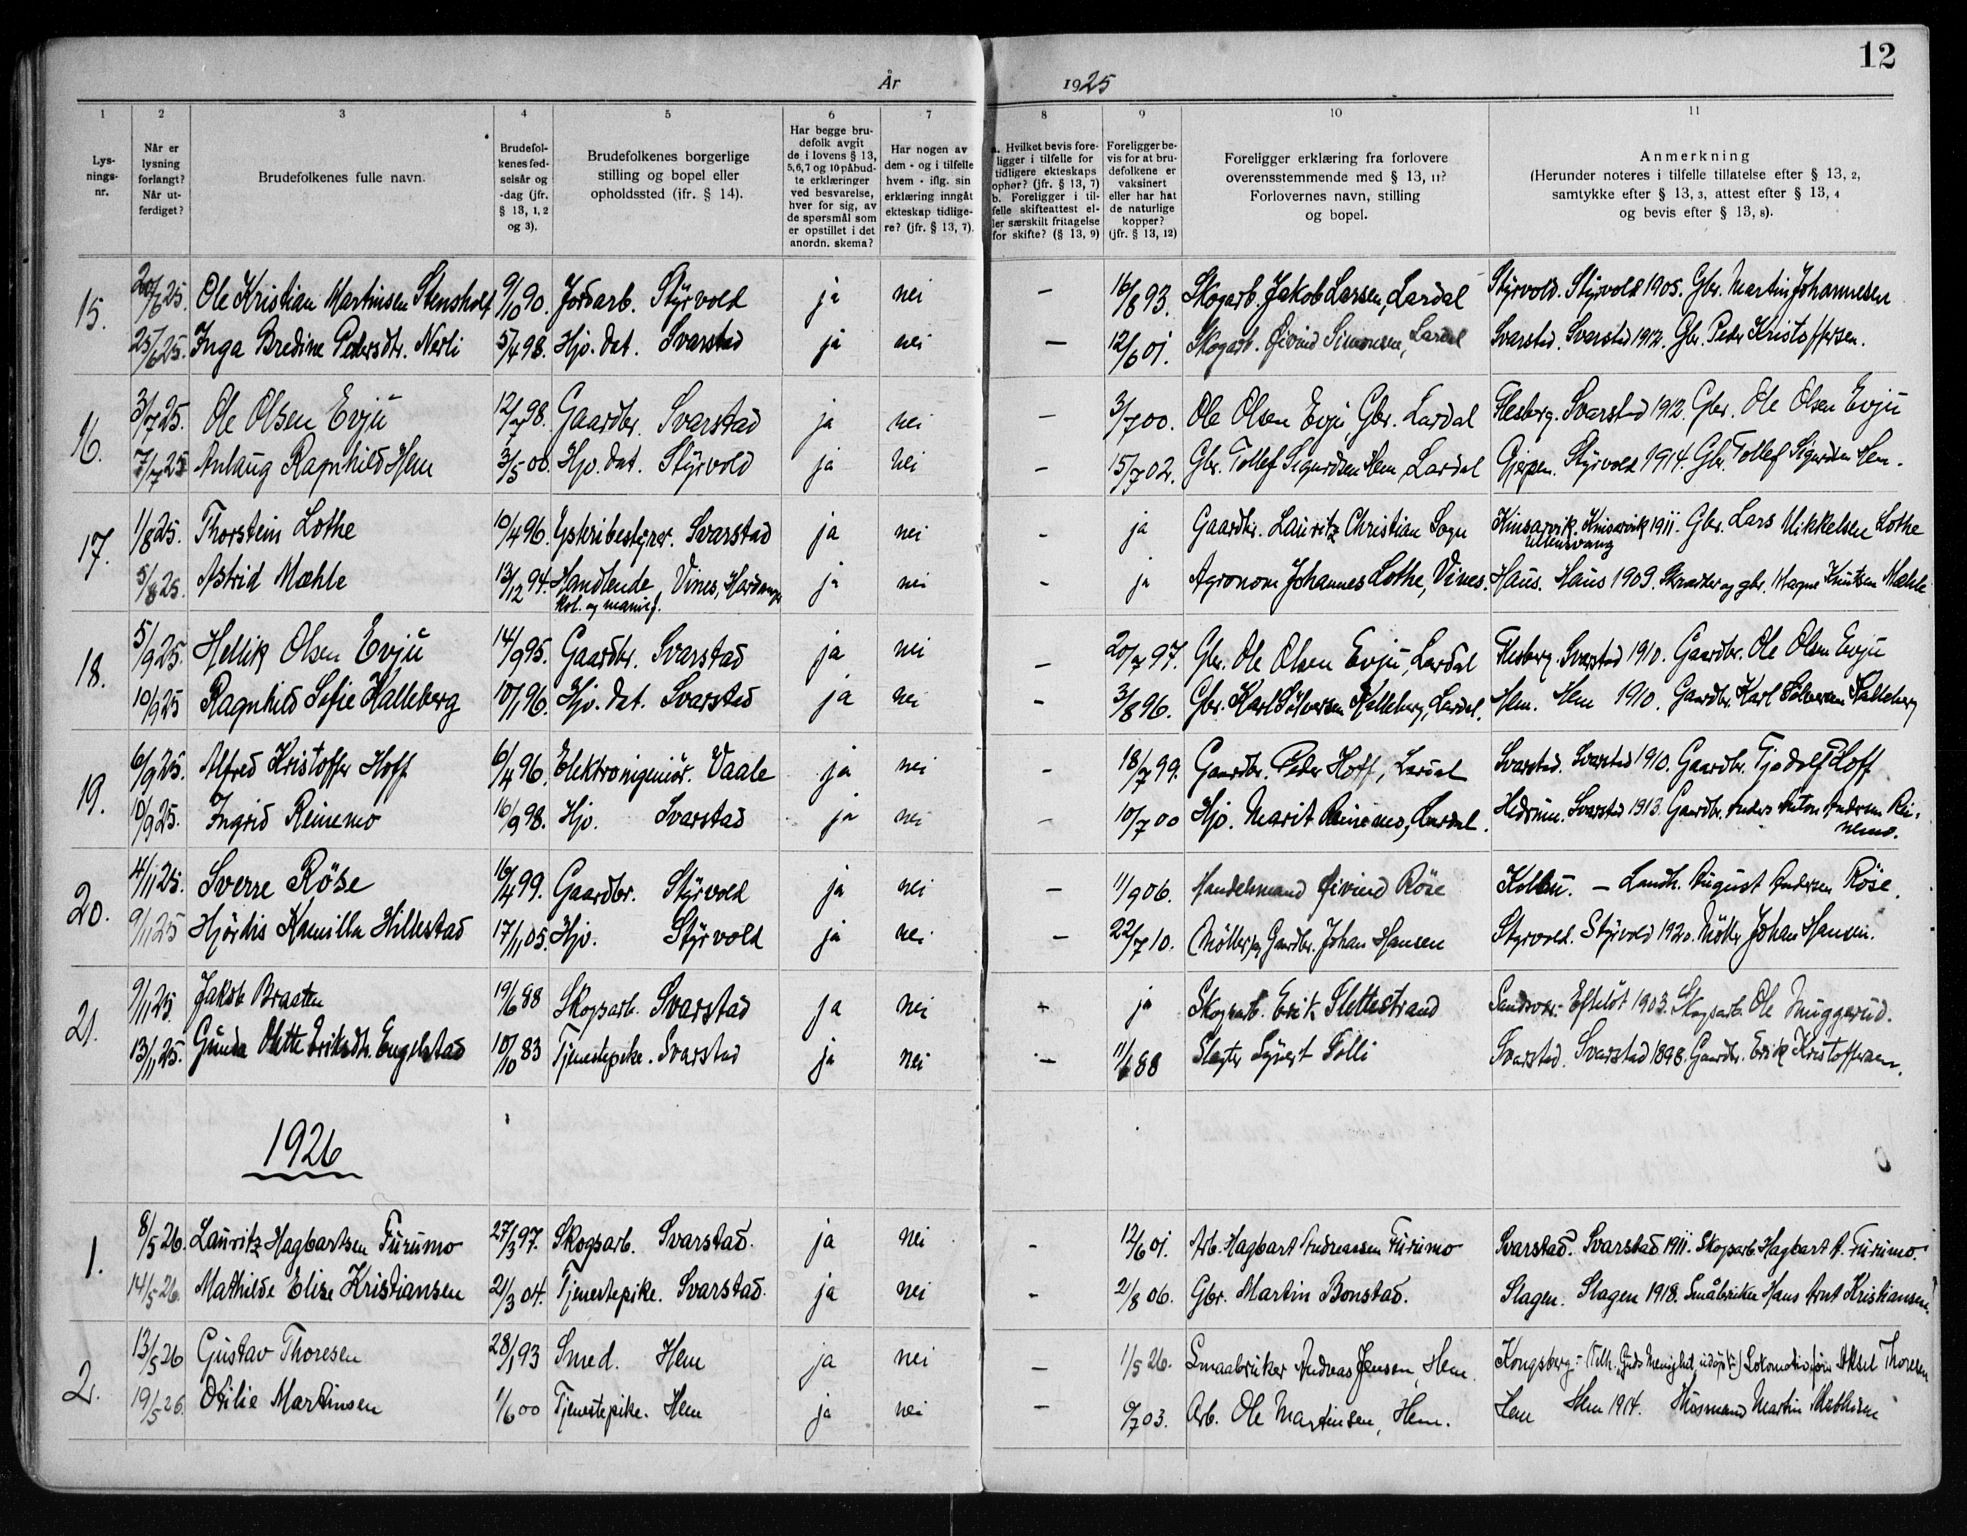 12
År 1925
1 2 3 4 5 6 7 8 9 10 11
Lysningsnr.
Når er lysning forlangt? Når utferdiget?
Brudefolkenes fulle navn.
Brudefolkenes fødselsår og -dag (jfr. § 13, 1, 2 og 3).
Brudefolkenes borgerlige stilling og bopel eller opholdssted (ifr. § 14).
Har begge brudefolk avgit de i lovens § 13, 5, 6, 7 og 10 påbudte erklæringer ved besvarelse, hver for sig, av de spørsmål som er opstillet i det anordn. skema?
Har nogen av dem - og i tilfelle hvem - iflg. sin erklæring inngåt ekteskap tidligere? (jfr. § 13, 7).
a. Hvilket bevis foreligger i tilfelle for tidligere ekteskaps ophør? (jfr. § 13, 7) b. Foreligger i tilfelle skifteattest eller særskilt fritagelse for skifte? (§ 13, 9)
Foreligger bevis for at brudefolkene er vaksinert eller har hat de naturlige kopper? (jfr. § 13, 12)
Foreligger erklæring fra forlovere overensstemmende med § 13, 11? Forlovernes navn, stilling og bopel.
Anmerkning (Herunder noteres i tilfelle tillatelse efter § 13, 2, samtykke efter § 13, 3, attest efter § 13, 4 og bevis efter § 13, 8).
15. 20/6 25. Ole Kristian Martinsen Stensholt 9/10 90. Jordarb. Styrvold ja nei — 16/8 93. Skogarb. Jakob Larsen, Lardal Styrvold. Styrvold 1905. Gbr. Martin Johannesen
25/6 25. Inga Bredine Pedersdtr. Nerli 5/4 98. Hjv. dat. Svarstad ja nei — 12/6 01. Skogarb. Øivind Simonsen, Lardal Svarstad. Svarstad 1912. Gbr. Peder Kristoffersen.
16. 3/7 25. Ole Olsen Evju 12/7 98. Gaardbr. Svarstad ja nei — 3/7 00. Ole Olsen Evju Gbr. Lardal Flesberg. Svarstad 1912. Gbr. Ole Olsen Evju
7/7 25 Anlaug Ragnhild Hem 3/5 00. Hjv. dat. Styrvold ja nei — 15/7 02. Gbr. Tollef Sigurdsen Hem, Lardal Gjerpen. Styrvold 1914. Gbr. Tollef Sigurdsen Hem.
17. 1/8 25. Thorstein Lothe 10/4 96. Ystribestyrer. Svarstad ja nei - ja Gaardbr. Lauritz Christian Sogn Kinsarvik, Kinsarvik 1911. Gbr. Lars Mikkelsen Lothe
Ullensvang
5/8 25. Astrid Mæhle 13/12 94. Handlende Vines, Hardanger ja nei - ja Agronom Johannes Lothe, Vines. Haus. Haus 1909. Skrædder og gbr. Magne Knutsen Mæhle
kol. og manuf.
18. 5/9 25. Hellik Olsen Evju 14/9 95. Gaardbr. Svarstad ja nei — 20/7 97. Gbr. Ole Olsen Evju, Lardal Flesberg. Svarstad 1910. Gaardbr. Ole Olsen Evju
10/9 25 Ragnhild Sofie Kalleberg 10/1 96. Hjv. dat. Svarstad ja nei - 3/8 96. Gbr. Karl Sølversen Kalleberg, Lardal. Hem. Hem 1910. Gaardbr. Karl Sølversen Kalleberg
19. 6/9 25. Alfred Kristoffer Hoff 6/4 96. Elektroingeniör. Vaale ja nei - 18/7 99. Gaardbr. Peder Hoff, Lardal Svarstad. Svarstad 1910. Gaardbr. Tjodolf Hoff
10/9 25. Ingrid Reinemo 16/9 98. Hjv. Svarstad ja nei - 10/7 00 Hjv. Marit Reinemo, Lardal. Hedrum. Svarstad 1913. Gaardbr. Anders Anton Andersen Reinemo.
20. 4/11 25. Sverre Röse 16/4 99. Gaardbr. Styrvold ja nei — 11/9 06. Handelsmand Øivind Röse Kolbu. — Landh. August Andersen Röse.
9/11 25 Hjördis Kamilla Hillestad 17/11 05. Hjv. Styrvold ja nei — 22/7 10. Möller og Gaardbr. Johan Hansen Styrvold. Styrvold 1920. Möller Johan Hansen.
21. 9/11 25. Jakob Braaten 19/6 88 Skogsarb. Svarstad ja nei - ja Skogsarb. Erik Slettestrand Sandsvær. Efteløt 1903. Skogsarb. Ole Muggerud.
13/11 25. Gunda Mette Eriksdtr. Engelstad 10/10 83 Tjenestepike. Svarstad ja nei — 11/6 88 Slagter Syvert Solli Svarstad. Svarstad 1898. Gaardbr. Erik Kristoffersen.
1926
1. 8/5 26. Lauritz Hagbartsen Furumo 27/3 97. Skogsarb. Svarstad. ja nei - 12/6 01. Arb. Hagbart Andreassen Furumo Svarstad. Svarstad 1911. Skogsarb. Hagbart A. Furumo.
14/5 26. Mathilde Elise Kristiansen 21/3 04. Tjenestepike. Svarstad. ja nei - 21/8 06. Gbr. Martin Bonstad. Slagen. Slagen 1918. Småbruker Hans Arnt Kristiansen.
2. 13/5 26 Gustav Thoresen 28/1 93 Smed. Hem ja nei — 1/5 26. Smaabruker Andreas Jensen, Hem. Kongsberg - Lokomotivför. Aksel Thoresen
19/5 26. Otilie Martinsen 1/6 00 Tjenestepike. Hem ja nei — 9/7 03. Arb. Ole Martinsen, Hem. Hem Hem 1914. Husmand Martin Mathisen